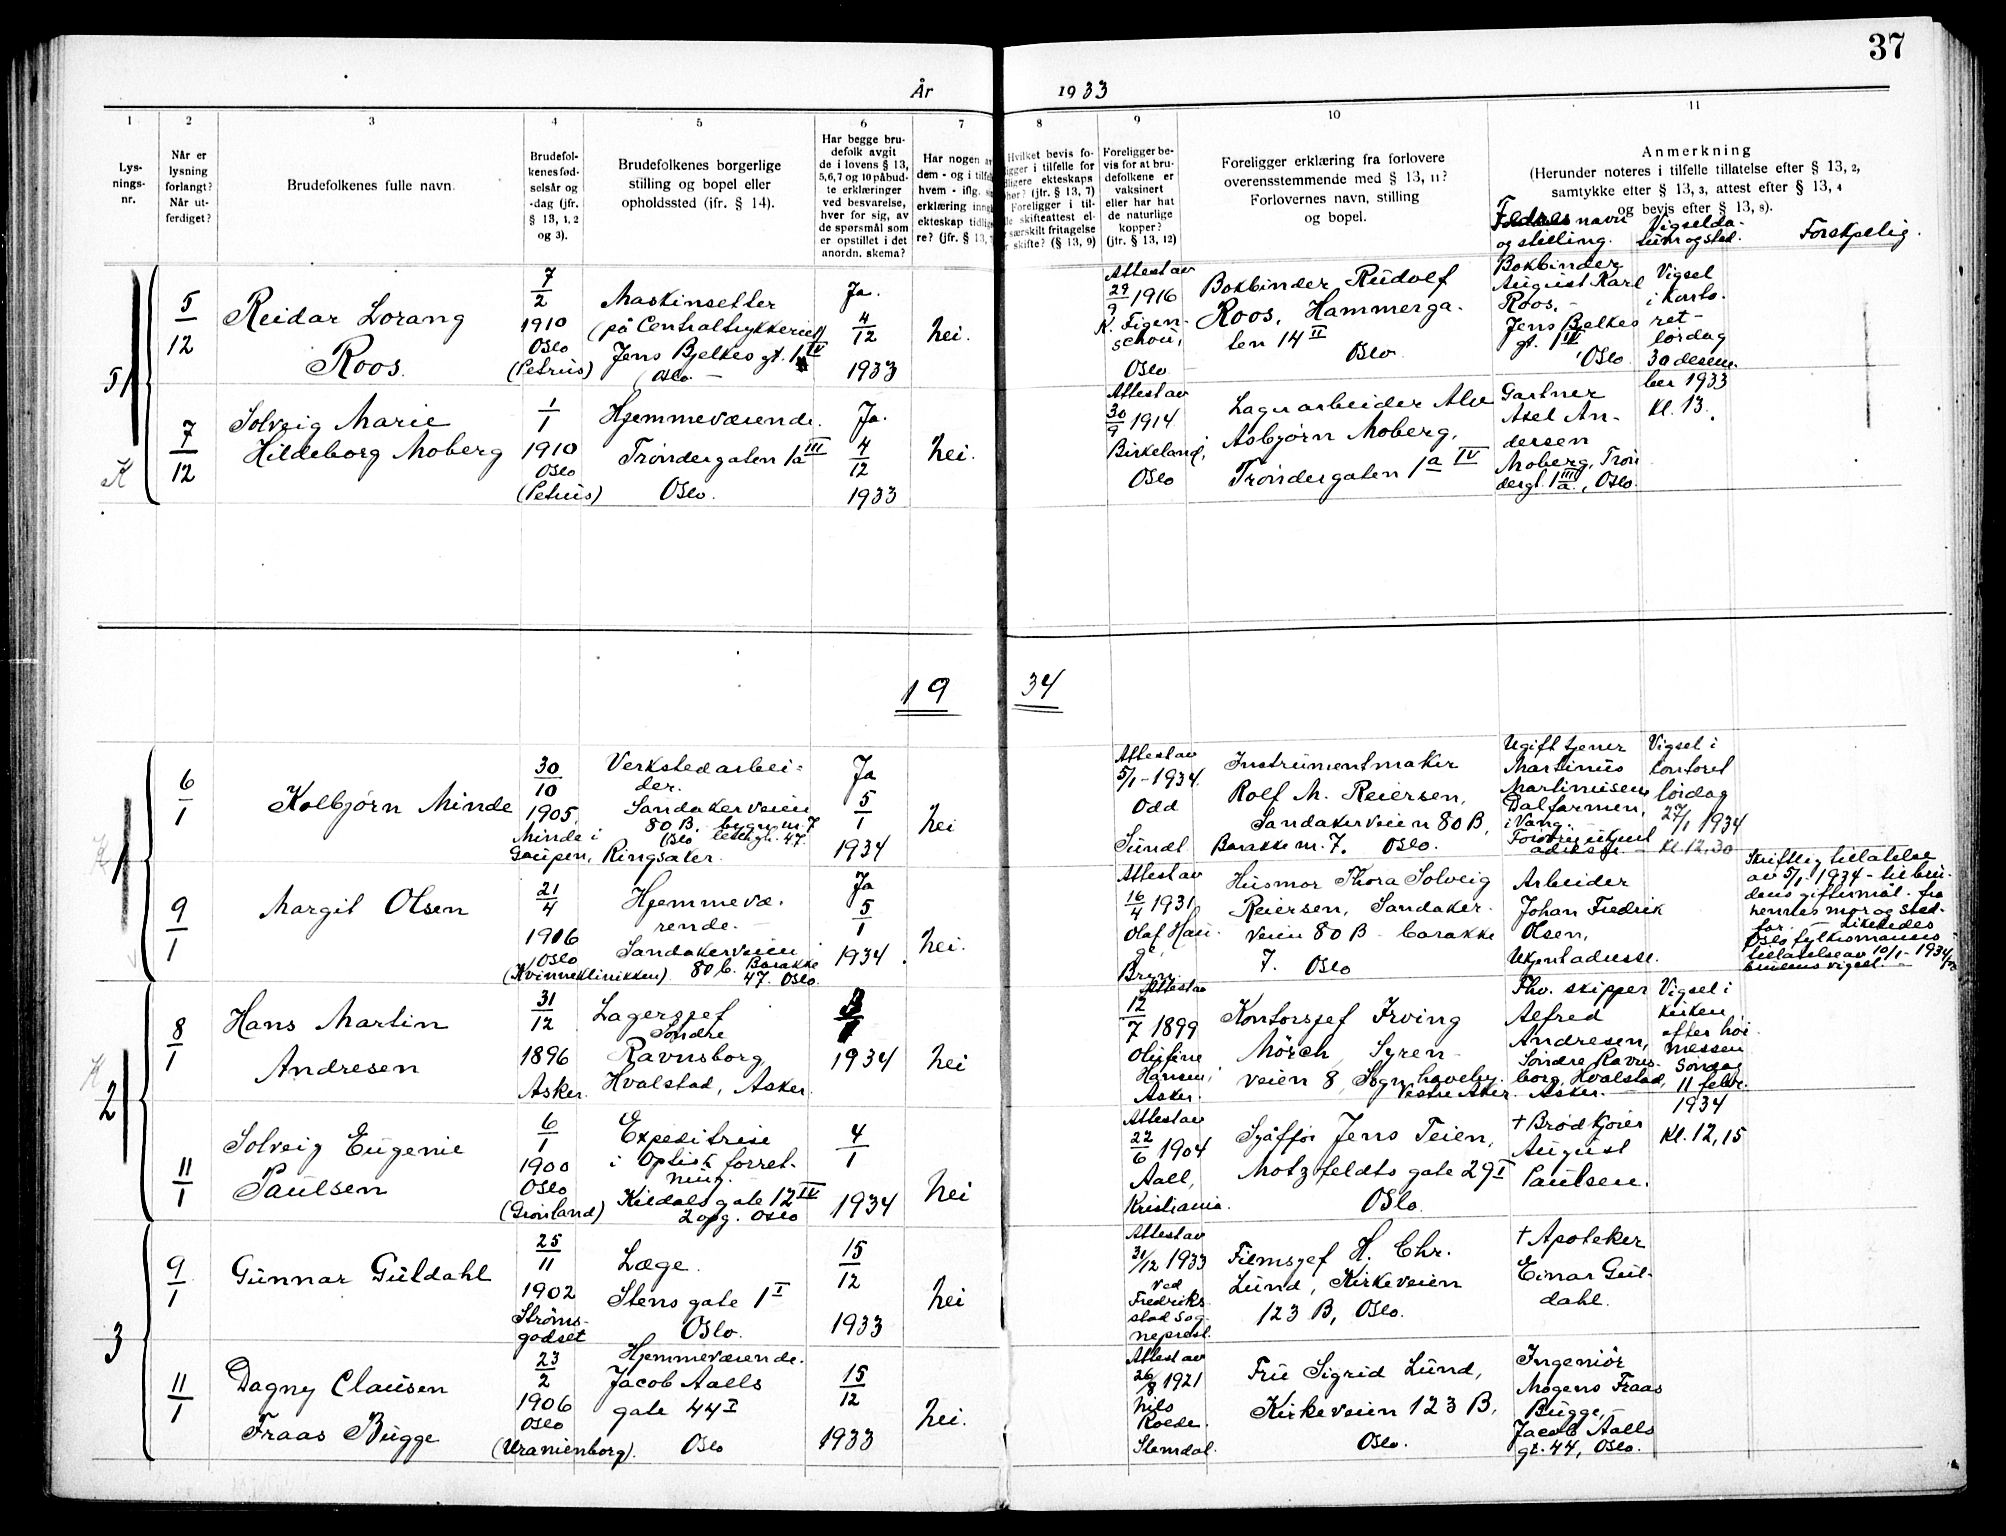 37
År 1933
1
2
3
4
5
6
7
8
9
10
11
Lys-
nings-
nr.
Når er
lysning
forlangt?
Når ut-
ferdiget?
Brudefolkenes fulle navn.
Brudefol-
kenes fød-
selsår og
-dag (jfr.
§ 13, 1, 2
og 3).
Brudefolkenes borgerlige
stilling og bopel eller
opholdssted (ifr. § 14).
Har begge bru-
defolk avgit
de i lovens § 13,
5,6,7 og 10 påbud-
te erklæringer
ved besvarelse,
hver for sig, av
de spørsmål som
er opstillet i det
anordn. skema?
Har nogen av
dem - og i tilfel
hvem - iflg. sin
erklæring inngå
ekteskap tidlig
re? (jfr. § 13, 7
Hvilket bevis fo-
ligger i tilfelle for
dligere ekteskaps
phør? (jfr. § 13, 7)
Foreligger i til-
le skifteattest el-
særskilt fritagelse
r skifte? (§ 13, 9)
Foreligger be-
vis for at bru-
defolkene er
vaksinert
eller har hat
de naturlige
kopper?
(jfr. § 13, 12)
Foreligger erklæring fra forlovere
overensstemmende med § 13, 11?
Forlovernes navn, stilling
og bopel.
Anmerkning
(Herunder noteres i tilfelle tillatelse efter § 13, 2,
samtykke efter § 13, 3, attest efter § 13, 4
og bevis efter § 13, 8).
Fedres navn
og stilling.
Vigselda-
tum og sted.
Forskjelig.
51
K
5/12
Reidar Lorang
Roos.
7/2
1910
Oslo
(Petrus)
Maskinsetter
(på Centraltrykkeriet)
Jens Bjelkes gt. 1 IV
Oslo.
Ja.
4/12
1933
Nei.
Attest av
29/9 1916
K. Figen-
schou,
Oslo
Bokbinder Rudolf
Roos, Hammerga-
ten 14 II
Oslo.
Bokbinder
August Karl
Roos,
Jens Bjelkes
gt. 1 IV
Oslo
Vigsel
i konto-
ret -
lørdag
30 desem-
ber 1933
Kl. 13.
7/12
Solveig Marie
Hildeborg Moberg
1/1
1910
Oslo
(Petrus)
Hjemmeværende.
Trøndergaten 1a III
Oslo.
Ja.
4/12
1933
Nei.
Attest av
30/9 1914
Birkeland,
Oslo
Lagerarbeider Alv
Asbjørn Moberg,
Trøndergaten 1a IV
Gartner
Axel An-
dersen
Moberg, Trøn
dergt. 1a III, Oslo.
19 34
1
6/1
Kolbjørn Minde
30/10
1905.
Minde i
Gaupen, Ringsaker.
Verkstedarbei-
der.
Sandakerveien
80 B. bygn. nr. 7
Oslo
47.
Ja
5/1
1934
Nei
Attest av
5/1 - 1934
Odd
Sundt
Instrumentmaker
Rolf M. Reiersen,
Sandakerveien 80 B,
Barakke nr. 7. Oslo.
Ugift tjener
Martinus
Martinusen
Dalfarmen,
i Vang.
Vigsel i
kontoret
lørdag
27/1 1934
Kl. 12,30
9/1
Margit Olsen
21/4
1916
Oslo
(Kvinneklinikken)
Hjemmevæ-
rende.
Sandakerveien
80 b. Barakke
47. Oslo.
Ja
5/1
1934.
Nei.
Attest av
16/4 1931
Olaf Hau-
ge,
Bryn.
Husmor Thora Solveig
Reiersen, Sandaker-
veien 80 B - barakke
7. Oslo
Arbeider
Johan Fredrik
Olsen,
Ukjent adresse.
Skriftlig tillatelse
av 5/1 - 1934 - til bru-
dens giftermål - fra
hennes mor og sted-
far. - Likeledes
Oslo fylkesmanns
tillatelse av 10/1 - 1934
brudens vigsel.
K
2
8/1
Hans Martin
Andresen
31/12
1896
Asker.
Lagersjef
Søndre
Ravnsborg
Hvalstad, Asker.
1934
Nei
Attest av
12/7 1899
Olufine
Hansen,
Asker.
Kontorsjef Irving
Mørch, Syren-
veien 8, Sogn haveby.
Vestre Aker.
Fhv. skipper
Alfred
Andresen,
Søndre Ravns-
borg, Hvalstad,
Asker.
Vigsel i
kirken
efter høi-
messen
Søndag
11 febr.
1934
Kl. 12,15
11/1
Solveig Eugenie
Paulsen
6/1
1900
Oslo
(Grønland)
Expeditrise
i Optisk forret-
ning.
Kildals gate 12 IV
2 opg. Oslo
4/1
1934
Nei
Attest av
22/6 1904
Aall,
Kristiania.
Sjåffør Jens Teien,
Motzfeldts gate 29 I
Oslo.
+ Brødkjører
August
Paulsen.
3
9/1
Gunnar Guldahl
25/11
1902
Strøms-
godset
Læge.
Stens gate 1 I
Oslo.
15/12
1933
Nei
Attest av
31/12 1933
ved
Fredrik-
stad Sog-
neprest.
Filmsjef H. Chr.
Lund, Kirkeveien
123 B, Oslo.
+ Apoteker
Einar Gul-
dahl.
11/1
Dagny Clausen
Fraas Bugge
23/2
1906
Oslo
(Uranienborg).
Hjemmeværende.
Jacob Aalls
gate 44 I
Oslo
15/12
1933
Nei.
Attest av
26/8 1921
Nils
Roede.
Slemdal.
Fru Sigrid Lund,
Kirkeveien 123 B,
Oslo.
Ingeniør
Mogens Fraas
Bugge,
Jacob Aalls
gt. 44, Oslo.